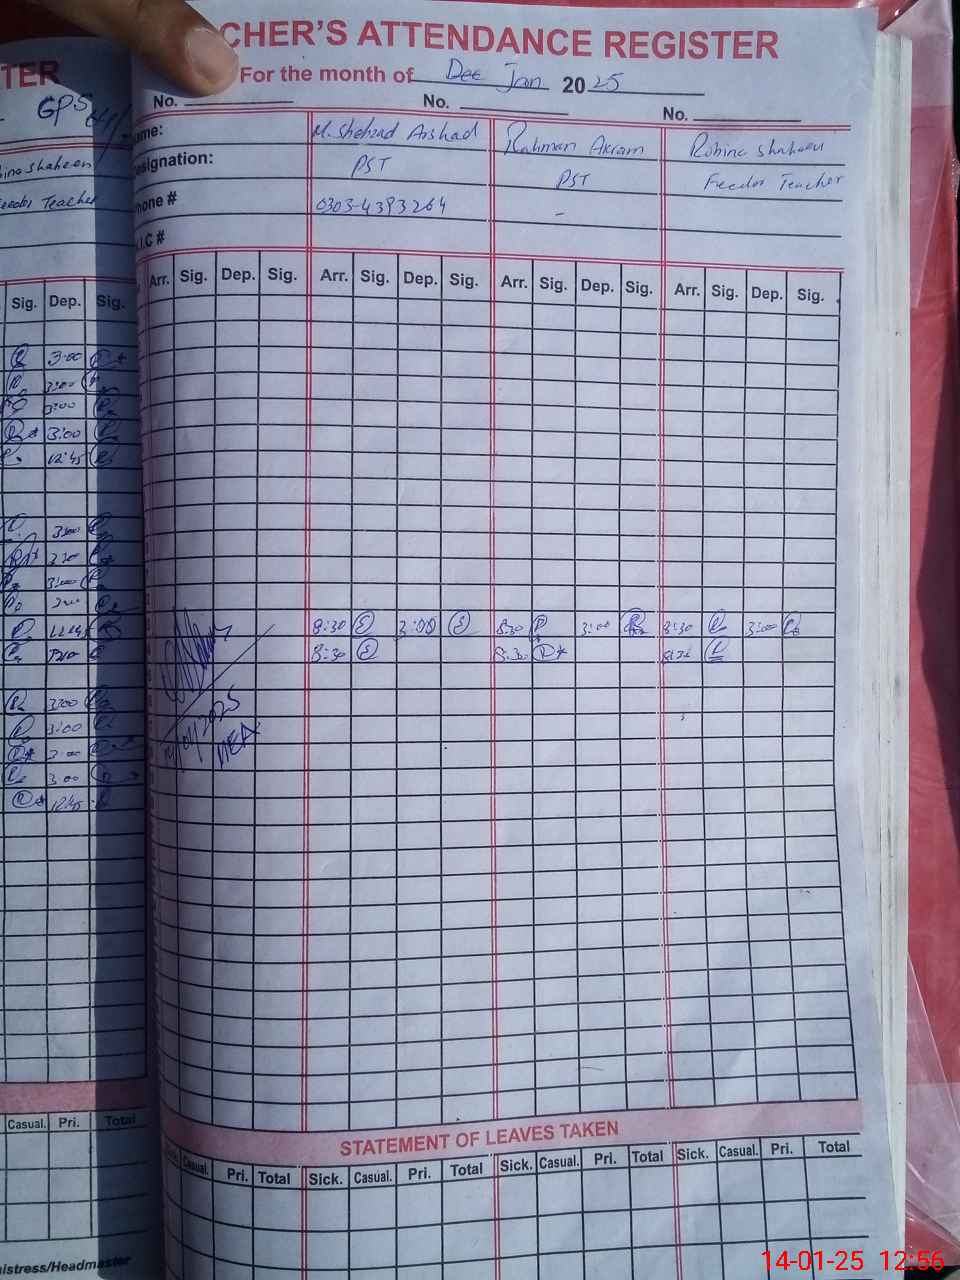 TER
GPS
Shaheen
Teacher
Sig. Dep. Sig.
3:00
3:00
3:00
3:00
12:45
3:00
3:00
3:00
3:00
3:00
3:00
3:00
3:00
12:45
Casual. Pri. Total
istress/Headmaster
CHER'S ATTENDANCE REGISTER
For the month of Dec Jan 2025
No. No. No.
ame: M. Shehzad Arshad Rahman Akram Robina Shaheen
esignation: PST PST Feeder Teacher
hone # 0303-4393264 -
.I.C #
Arr. Sig. Dep. Sig. Arr. Sig. Dep. Sig. Arr. Sig. Dep. Sig. Arr. Sig. Dep. Sig.
8:30 3:00 8:30 3:00 8:30 3:00
8:30 8:30 8:30
14/01/2025
MEA
STATEMENT OF LEAVES TAKEN
Sick. Casual. Pri. Total Sick. Casual. Pri. Total Sick. Casual. Pri. Total Sick. Casual. Pri. Total
14-01-25 12:56